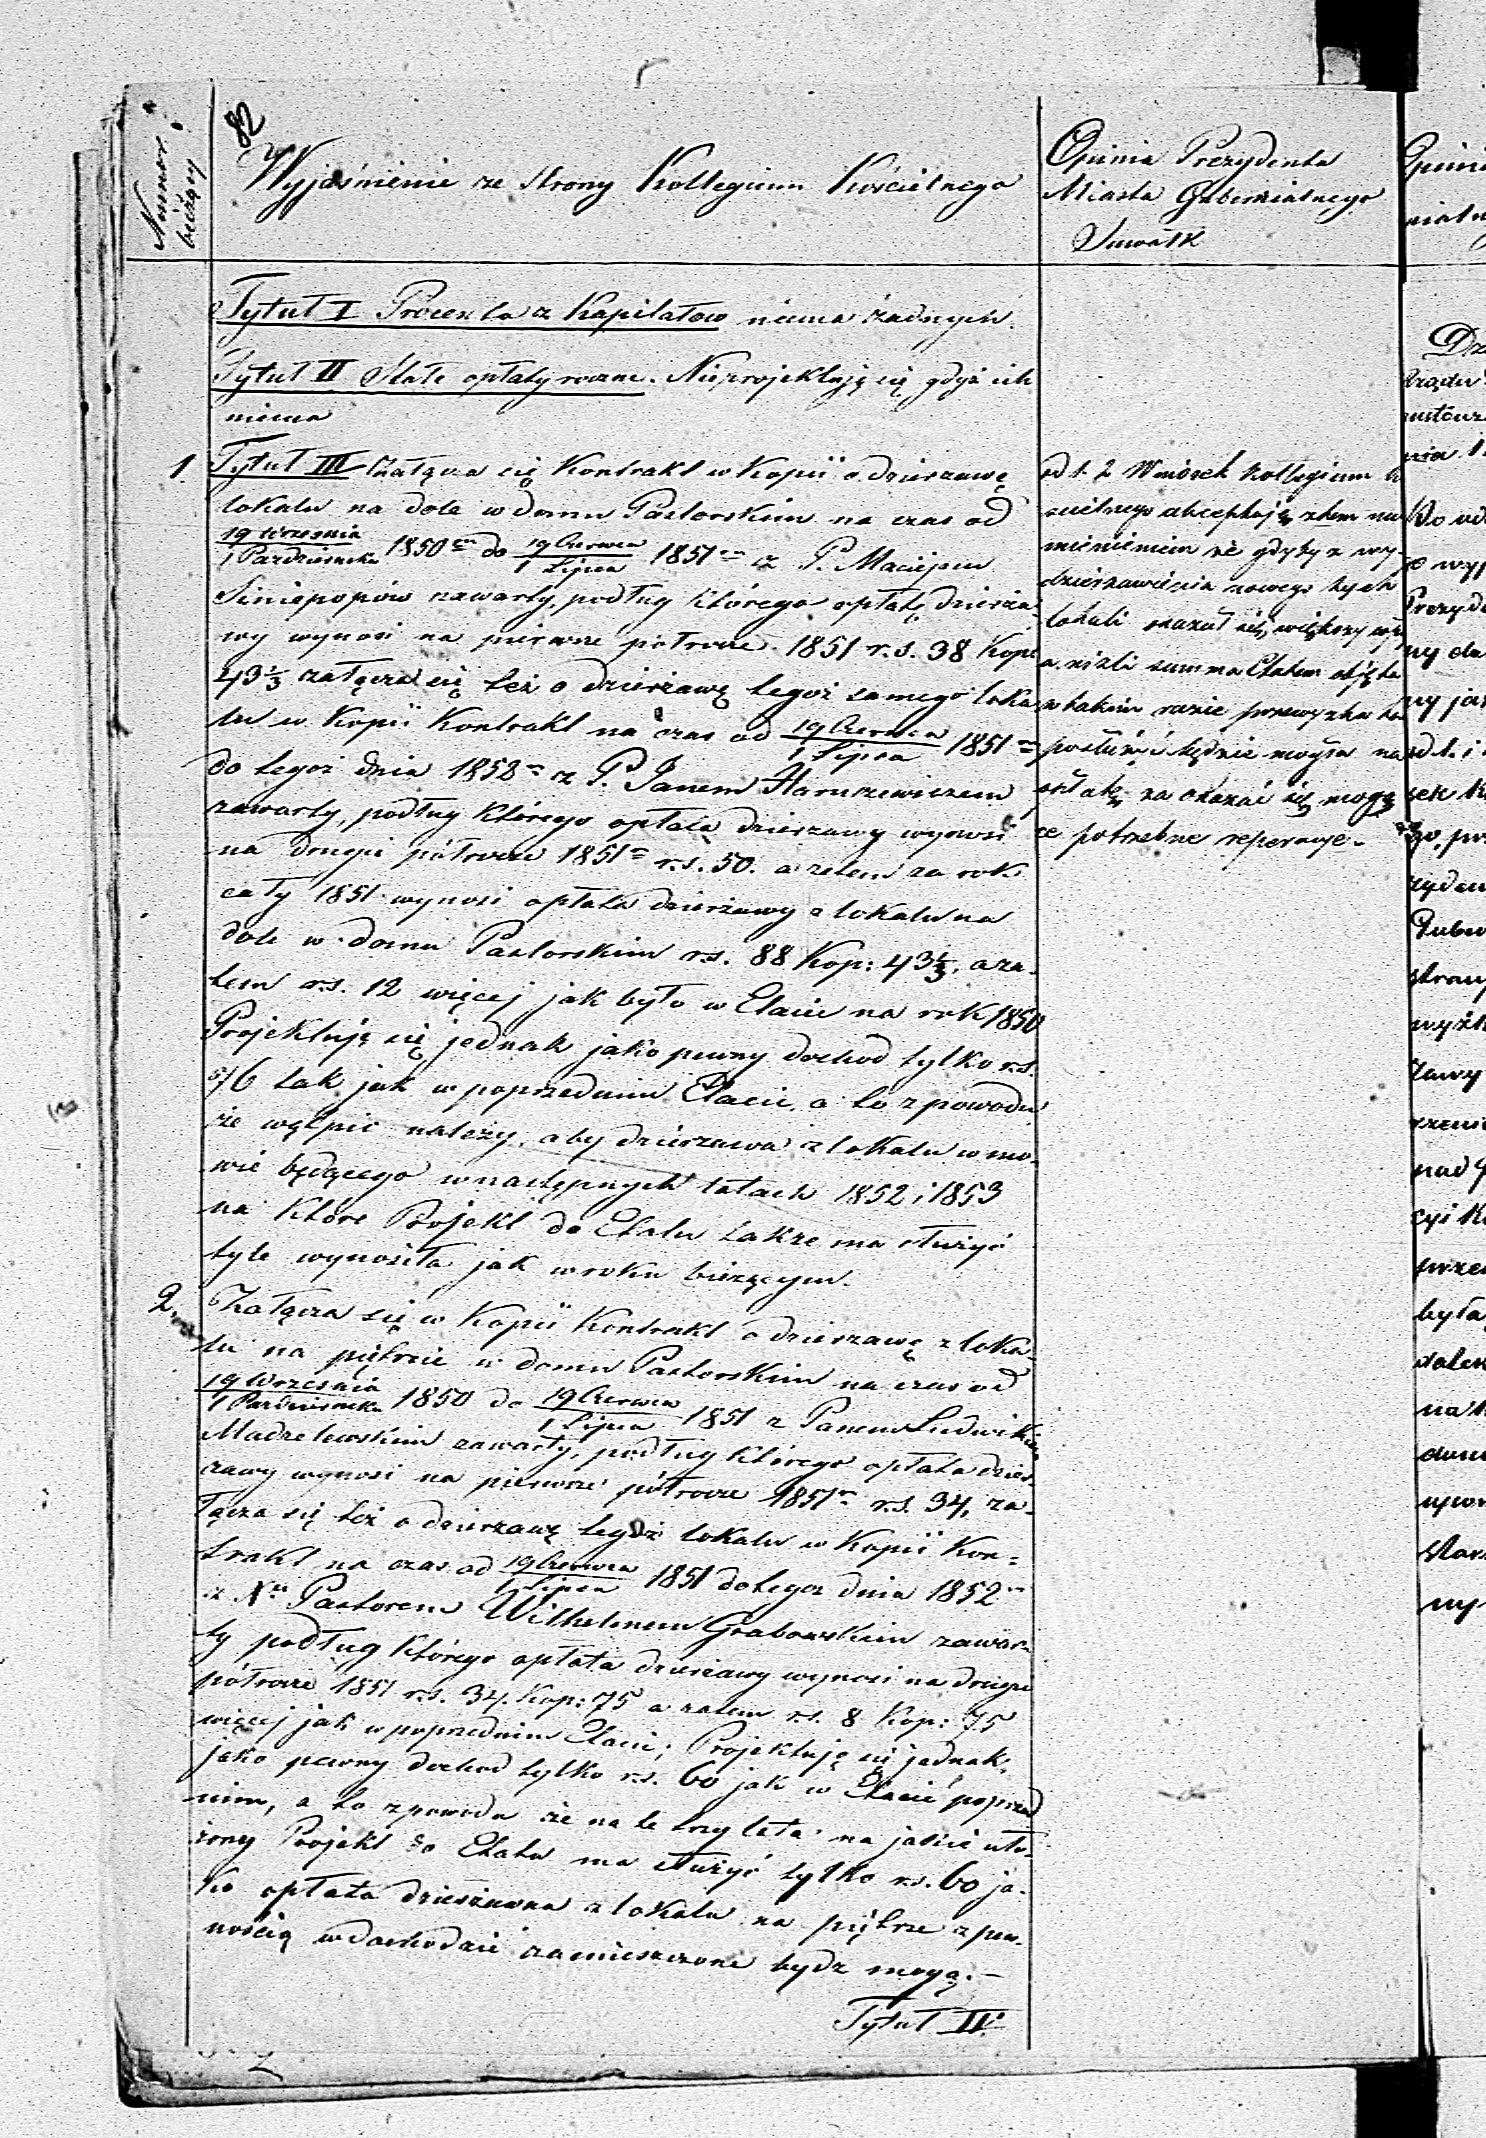 82
Numer
bieżący
Wyjaśnienie ze strony Kollegium Kościelnego
Opinia Prezydenta
Miasta Gubernialnego
Suwałk
Tytuł I Procenta z Kapitałow niema żadnych.
Tytuł II Stałe opłaty roczne. Nieprojektują się gdyż ich
niema
1. Tytuł III Załącza się Kontrakt w Kopii o dzierżawę
lokalu na dole w domu Pastorskim na czas od
19 Września
1 Października 1850 do 19 Czerwca
1 Lipca 1851 z P. Maciejem
Siniepopów zawarty, podług którego opłatę dzierża-
wy wynosi na pierwsze półrocze 1851 r.s. 38 Kop:
43 1/3 załącza się też o dzierżawę tegoż samego loka-
lu w Kopii Kontrakt na czas od 19 Czerwca
1 Lipca 1851
do tegoż dnia 1852 z P. Janem Haruszewiczem
zawarty, podług którego opłata dzierżawy wynosi
na drugie półrocze 1851 r.s. 50. a zatem za rok
cały 1851 wynosi opłata dzierżawy z lokalu na
dole w domu Pastorskim r.s. 88 Kop: 43 1/3, a za-
tem r.s. 12 więcej jak było w Etacie na rok 1850
Projektuję się jednak jako pewny dochod tylko r.s.
76 tak jak w poprzednim Etacie, a to z powodu
że wątpić należy, aby dzierżawa z lokalu w mo-
wie będącego w następnych latach 1852 i 1853
na które Projekt do Etatu także ma służyć
tyle wynosiła jak w roku bieżącym.
2. Załącza się w Kopii Kontrakt o dzierżawę z loka-
lu na piętrze w domu Pastorskim na czas od
19 Września
1 Października 1850 do 19 Czerwca
1 Lipca 1851 z Panem Ludwikiem
Madzelewskim zawarty, podług którego opłata dzier-
żawy wynosi na pierwsze półrocze 1851 r.s. 34, za-
łącza się też o dzierżawę tegoż lokalu w Kopii Kon-
trakt na czas od 19 Czerwca
1 Lipca 1851 do tegoż dnia 1852
z Pastorem Wilhelmem Grabowskim zawar-
ty podług którego opłata dzierżawy wynosi na drugie
półrocze 1851 r.s. 34. Kop: 75 a zatem r.s. 8 Kop: 75
więcej jak w poprzednim Etacie; Projektuję się jednak,
jako pewny dochod tylko r.s. 60 jak w Etacie poprzed
nim, a to z powodu że na te trzy lata na jakie uło-
żony Projekt do Etatu ma służyć tylko r.s. 60 ja-
ko opłata dzierżawna z lokalu na piętrze z pew-
nością w dochodzie zamieszczone bydz mogą.—
Tytuł IV.
ad 1. 2 Wniosek Kollegium Ko
scielnego akceptuję z tem na
mienieniem że gdyby z wy-
dzierżawienia nowego tych
lokali okazał się większy
a niżli summa Etatem objęta
w takim razie przewyżka ta
posłużyć będzie mogła na
za okazać się mogą
ce potrzebne reperacye.